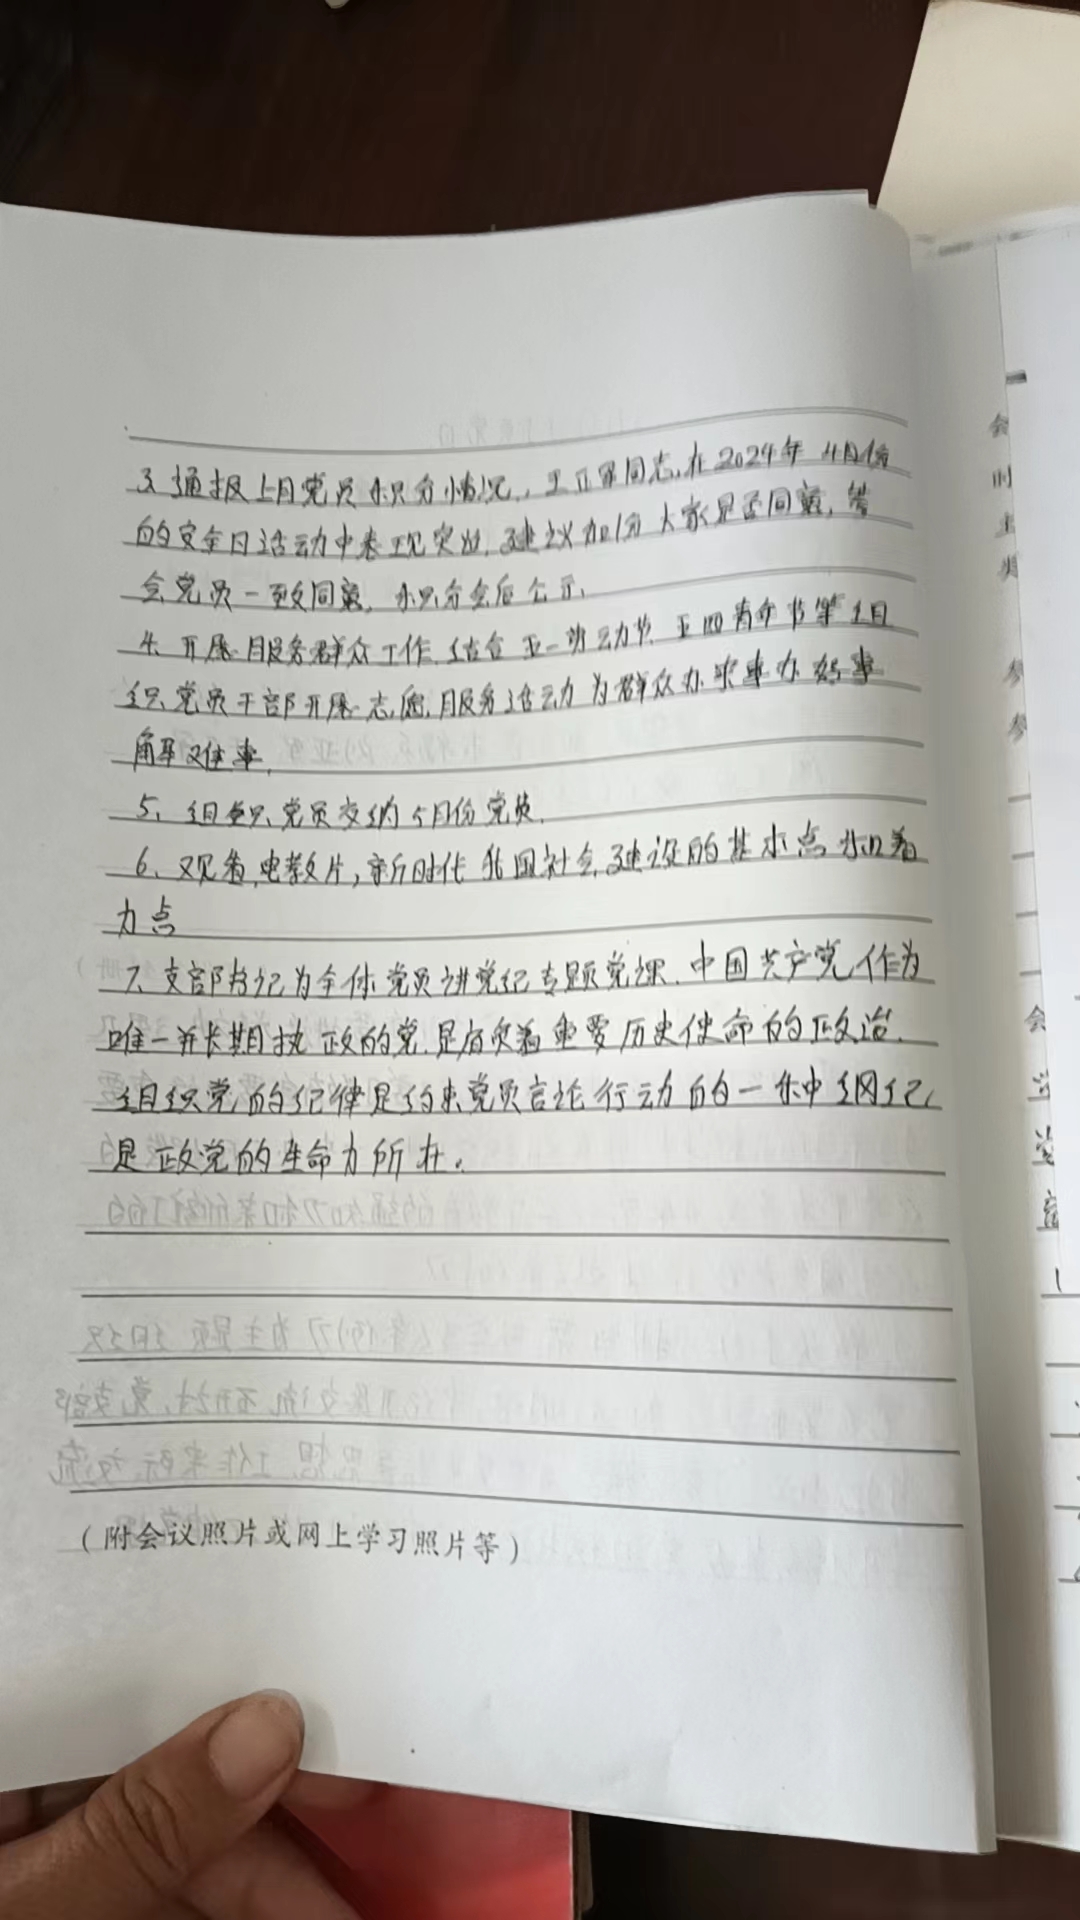 3、通报上月党员积分情况，王正军同志，在2024年4月份
的安全日活动中表现突出，建议加1分大家是否同意，
会党员一致同意，积分会后公示，
4、开展服务群众工作，结合五一劳动节、五四青年节等组
织党员干部开展志愿服务活动为群众办实事办好事
解难事，
5、组织党员交纳5月份党费，
6、观看电教片，新时代我国社会建设的基本点和着
力点
7、支部书记为全体党员讲党纪专题党课，中国共产党作为
唯一并长期执政的党，是肩负着重要历史使命的政治
组织党的纪律是约束党员言论行动的一种纲纪，
是政党的生命力所在。
（附会议照片或网上学习照片等）
会
时
主
类
参
参
会